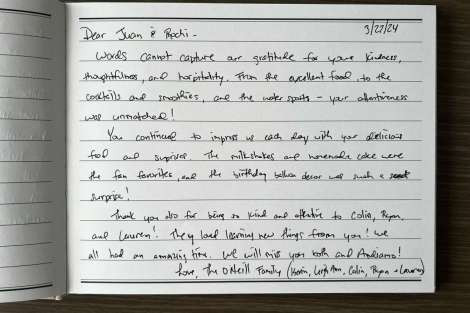 3/22/24
Dear Juan & Rochi -
Words cannot capture our gratitude for your kindness,
thoughtfulness, and hospitality. From the excellent food, to the
cocktails and smoothies, and the water sports - your attentiveness
was unmatched!
You continued to impress us each day with your delicious
food and surprises. The milkshakes and homemade cake were
the fan favorites, and the birthday balloon decor was such a
surprise!
Thank you also for being so kind and attentive to Colin, Ryan,
and Lauren! They loved learning new things from you! We
all had an amazing time. We will miss you both and Andiamo!
Love, The O'Neill Family (Kevin, Leigh Ann, Colin, Ryan + Lauren)